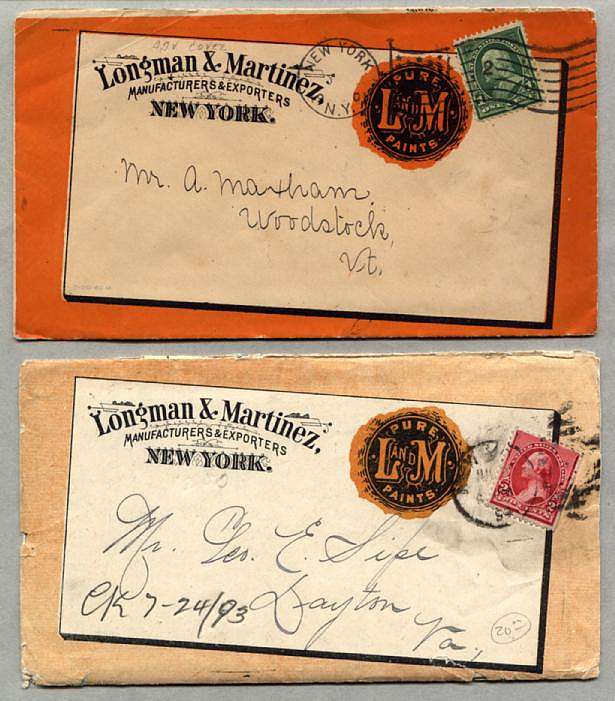 ADV COVER
Longman & Martinez,
MANUFACTURERS & EXPORTERS
NEW YORK.
NEW YORK
N.Y.
PURE
L AND M
PAINTS.
Mr. A. Maxham,
Woodstock,
Vt.
Longman & Martinez,
MANUFACTURERS & EXPORTERS
NEW YORK.
PURE
L AND M
PAINTS.
2 2
Mr. Geo. E. Sipe
CK 7-24/93
Dayton
Va,
20-